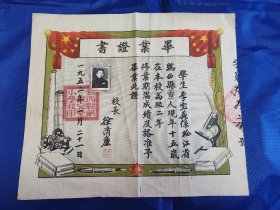 畢業證書
學生李義係松江省
縣市人現年十五歲
在本校高級二年
修業期滿成績及格准予
畢業此證
校長 徐清廉
一九五年月二十一日